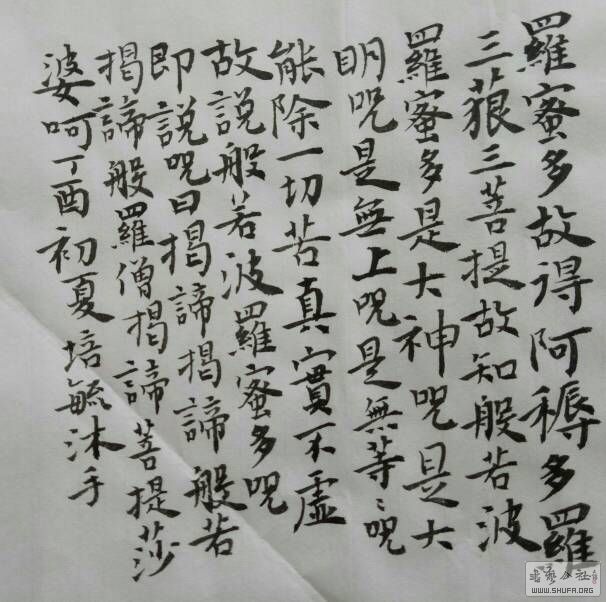 羅蜜多故得阿耨多羅
三藐三菩提故知般若波
羅蜜多是大神呪是大
明呪是無上呪是無等〻呪
能除一切苦真實不虛
故説般若波羅蜜多呪
即説呪曰揭諦揭諦般若
揭諦般羅僧揭諦菩提莎
婆呵丁酉初夏培毓沐手
WWW.SHUFA.ORG